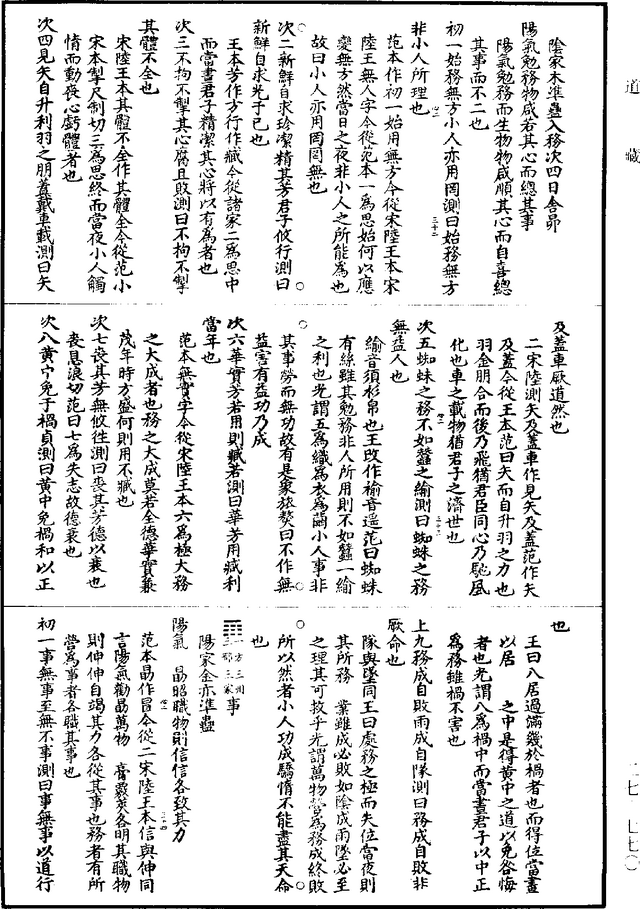 道藏
陰家木準蠱入務次四日舍昴
陽氣勉務物咸若其心而總其事
陽氣勉務而生物物咸順其心而自喜總
其事而不二也
初一始務無方小人亦用罔測曰始務無方
非小人所理也
范本作初一始用無方今從宋陸王本宋
陸王無人字今從范本一為思始何以應
變無方然當日之夜非小人之所能為也
故曰小人亦用罔罔無也
次二新鮮自求珍潔精其芳君子攸行測曰
新鮮自求光于己也
王本芳作方行作臧今從諸家二為思中
而當晝君子精潔其心將以有為者也
次三不拘不掣其心腐且敗測曰不拘不掣
其體不全也
宋陸王本其體不全作其體全今從范小
宋本掣尺制切三為思終而當夜小人觸
情而動喪心虧體者也
次四見矢自升利羽之朋蓋戴車載測曰矢
及蓋車厥道然也
二宋陸測矢及蓋車作見矢及蓋范作矢
及蓋今從王本范曰矢而自升羽之力也
羽金朋合而後乃飛猶君臣同心乃馳風
化也車之載物猶君子之濟世也
次五蜘蛛之務不如蠶之緰測曰蜘蛛之務
無益人也
緰音須衫帛也王改作褕音遥范曰蜘蛛
有絲雖其勉務非人所用則不如蠶一緰
之利也光謂五為織為衣為繭小人事非
其事勞而無功故有是象旅獒曰不作無
益害有益功乃成
次六華實芳若用則臧若測曰華芳用臧利
當年也
范本無實字今從宋陸王本六為極大務
之大成者也務之大成莫若全德華實兼
茂年時方盛何則用不臧也
次七喪其芳無攸往測曰喪其芳德以衰也
喪息浪切范曰七為失志故德衰也
次八黃中免于禍貞測曰黃中免禍和以正
也
王曰八居過滿幾於禍者也而得位當晝
以居 之中是得黃中之道以免咎悔
者也光謂八為禍中而當晝君子以中正
為務雖禍不害也
上九務成自敗雨成自隊測曰務成自敗非
厥命也
隊與墜同王曰處務之極而失位當夜則
其所務 業雖成必敗如陰成雨墜必至
之理其可救乎光謂萬物營為務成終敗
所以然者小人功成驕惰不能盡其天命
也
一方三州三部三家事
陽家金亦準蠱
陽氣 勗昭職物則信信各致其力
范本勗作冒今從二宋陸王本信與伸同
言陽氣勸勗萬物 膏靈英各明其職物
則伸伸自竭其力各從其事也務者有所
營為事者各職其事也
初一事無事至無不事測曰事無事以道行